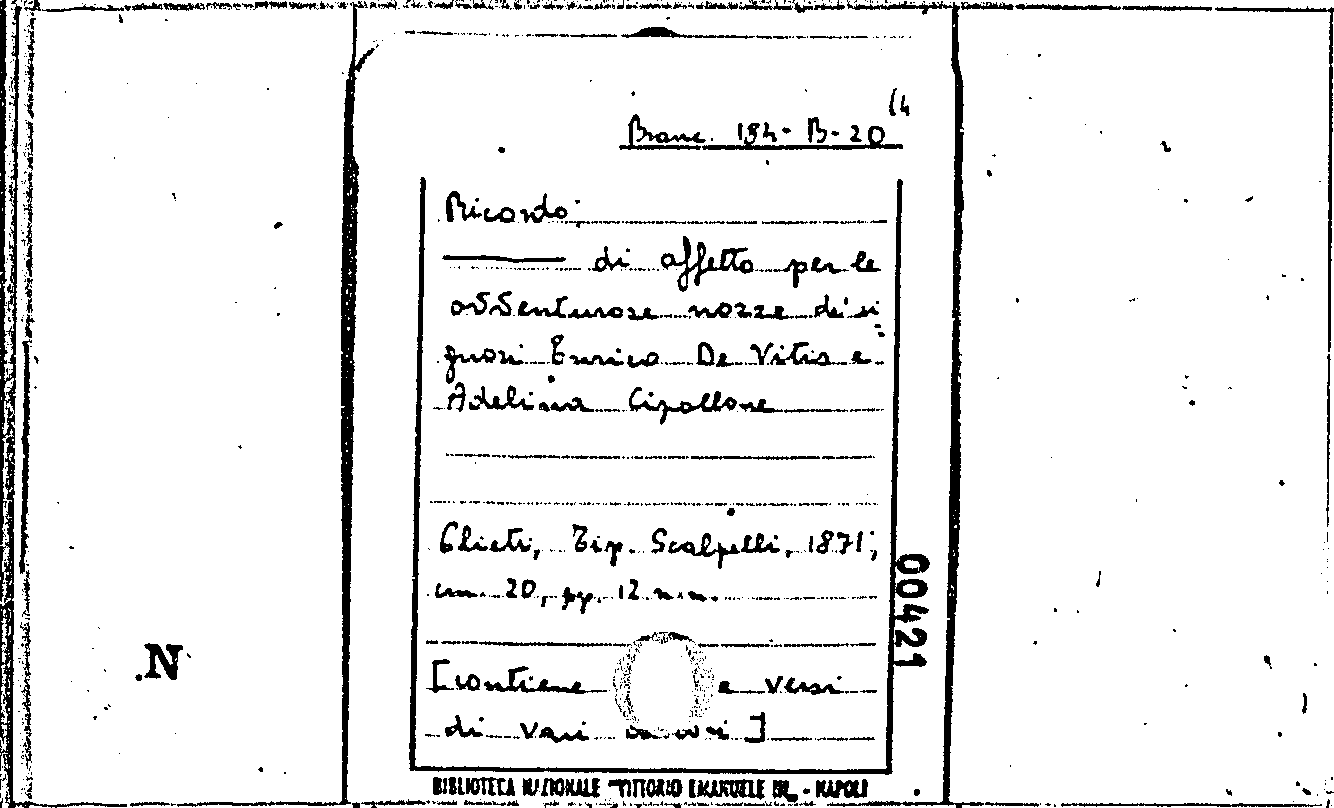 (4
Branc. 194- B- 20
Ricordo
di affetto per le
avventurose nozze dei si
gnori Enrico De Vitis e
Adelina Cipollone
Chieti, Tip. Scalpelli, 1871;
cm. 20, pp. 12 n.n.
[contiene e versi
di vari ]
00421
.N
BIBLIOTECA NAZIONALE "VITTORIO EMANUELE III" - NAPOLI